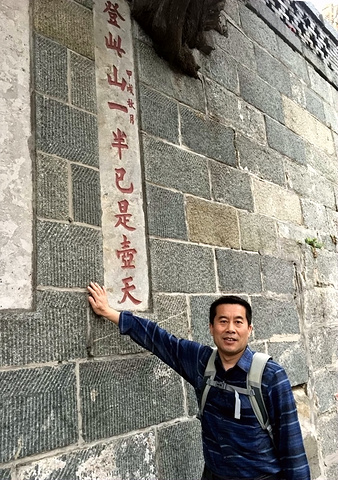 登此山一半已是壺天
甲戌秋月